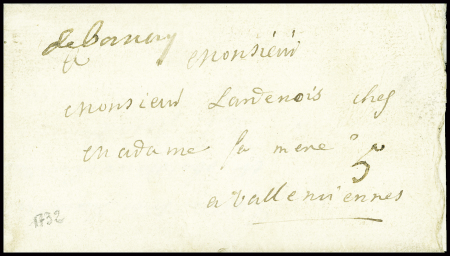 de bernay
A Monsieur
Monsieur Lardenois chez
Madame sa mere
5
a Vallenciennes
1732